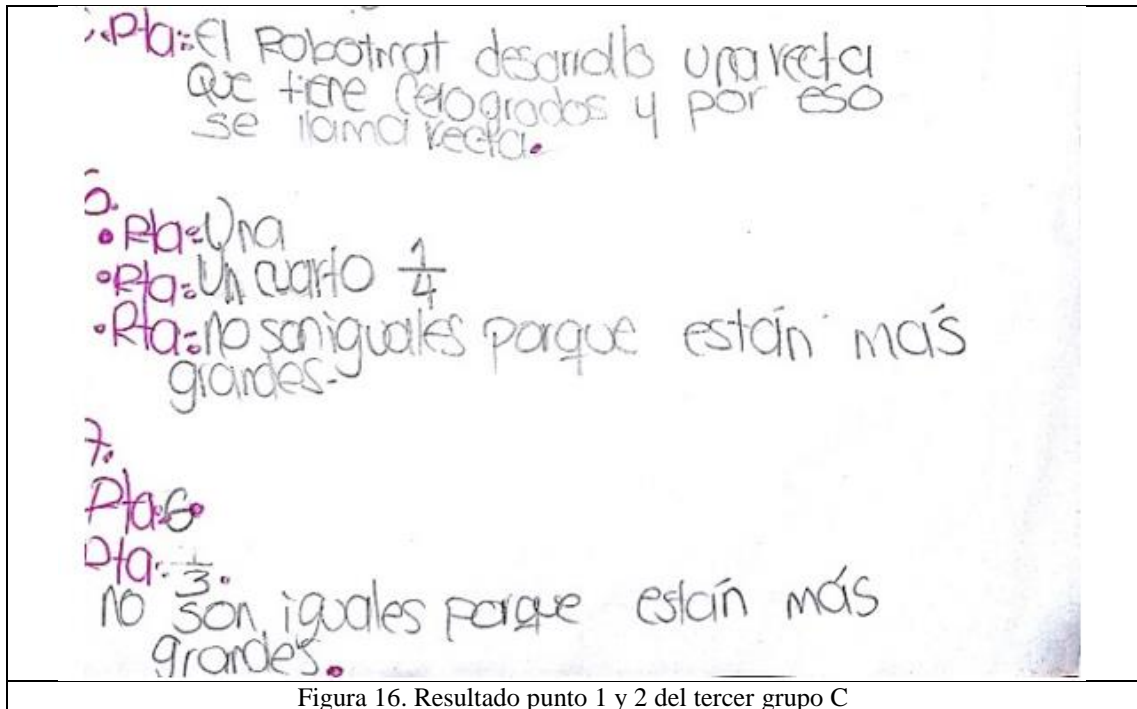 Rta=El Robotmat desarrollo una recta
que tiene Cerogrados y por eso
se llama recta.
• Rta=Una
• Rta=Un cuarto 1/4
• Rta=no son iguales porque están más
grandes.
7.
Rta=6.
Rta: 1/3.
no son iguales porque están más
grandes.
Figura 16. Resultado punto 1 y 2 del tercer grupo C